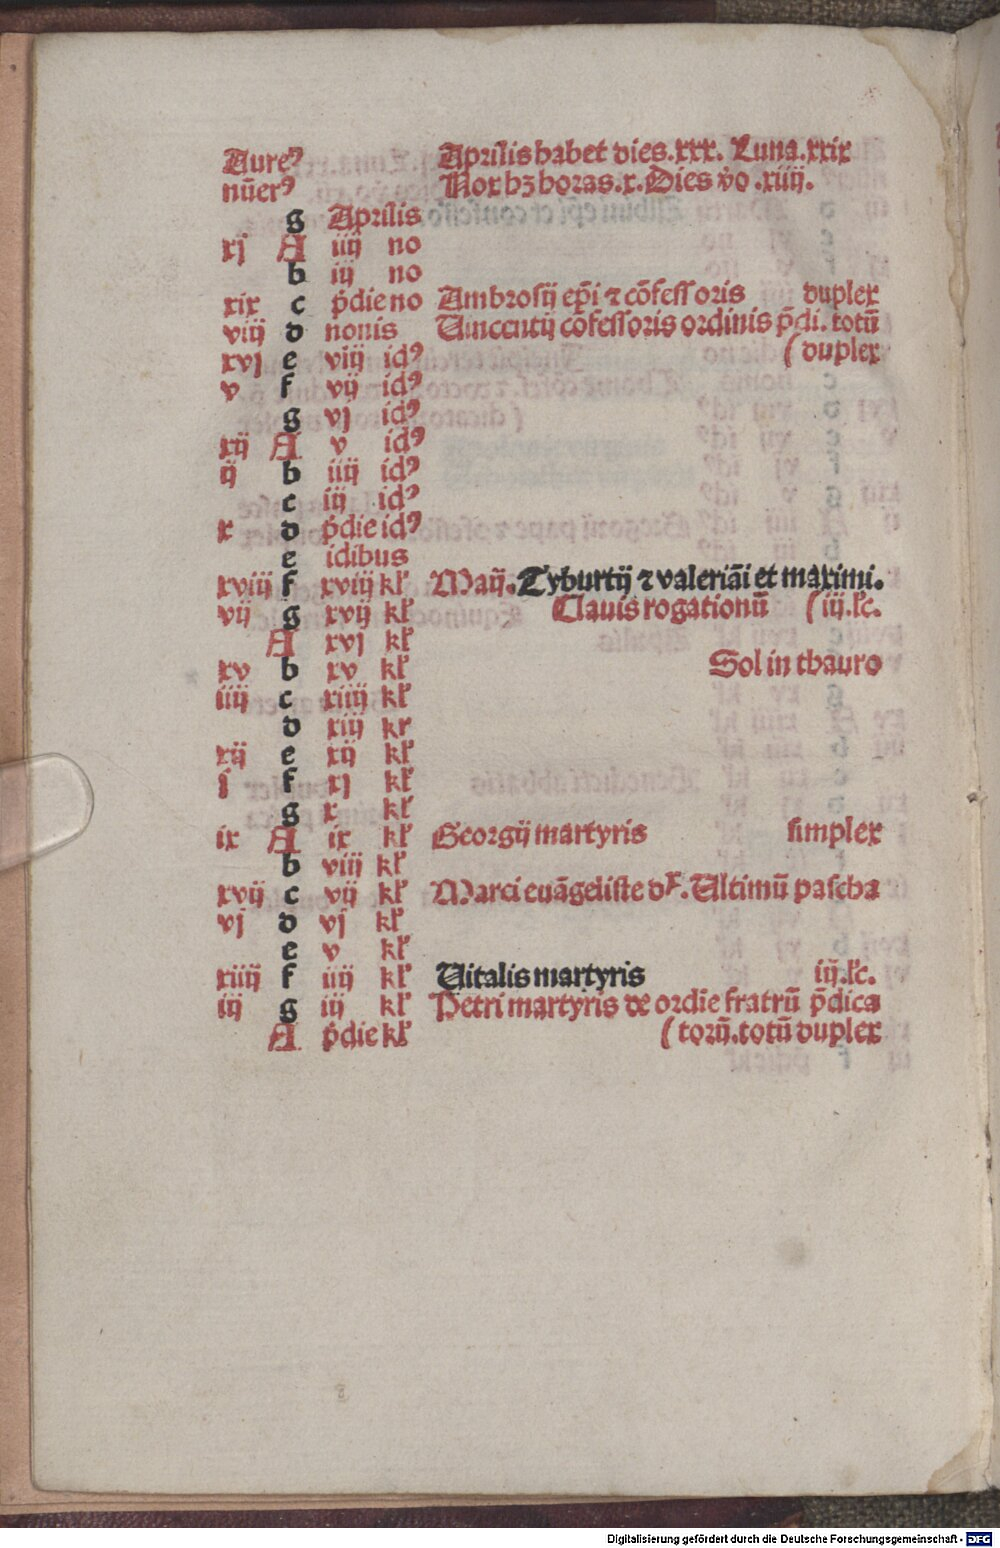 Aureꝰ Aprilis habet dies.xxx. Luna.xxix
nūerꝰ Nox hꝫ horas.x. Dies v̊o .xiiij.
g Aprilis
xj A iiij no
b iij no
xix c p̄die no Ambrosij ep̄i ⁊ cōfessoris duplex
viij d nonis Vincentij cōfessoris ordinis p̄di. totū
xvj e viij idꝰ (duplex
v f vij idꝰ
g vj idꝰ
xij A v idꝰ
ij b iiij idꝰ
c iij idꝰ
x d p̄die idꝰ
e idibus
xviij f xviij kł Maij. Tyburtij ⁊ valeriāi et maximi.
vij g xvij kł Clauis rogationū (iij.łc.
A xvj kł
xv b xv kł Sol in thauro
iiij c xiiij kł
d xiij kr
xij e xij kł
j f xj kł
g x kł
ix A ix kł Georgij martyris simplex
b viij kł
xvij c vij kł Marci euāgeliste dx. Vltimū pascha
vj d vj kł
e v kł
xiiij f iiij kł Vitalis martyris iij.łc.
iij g iij kł Petri martyris de ordīe fratrū p̄dica
A p̄die kł (torū. totū duplex
Digitalisierung gefördert durch die Deutsche Forschungsgemeinschaft - DFG